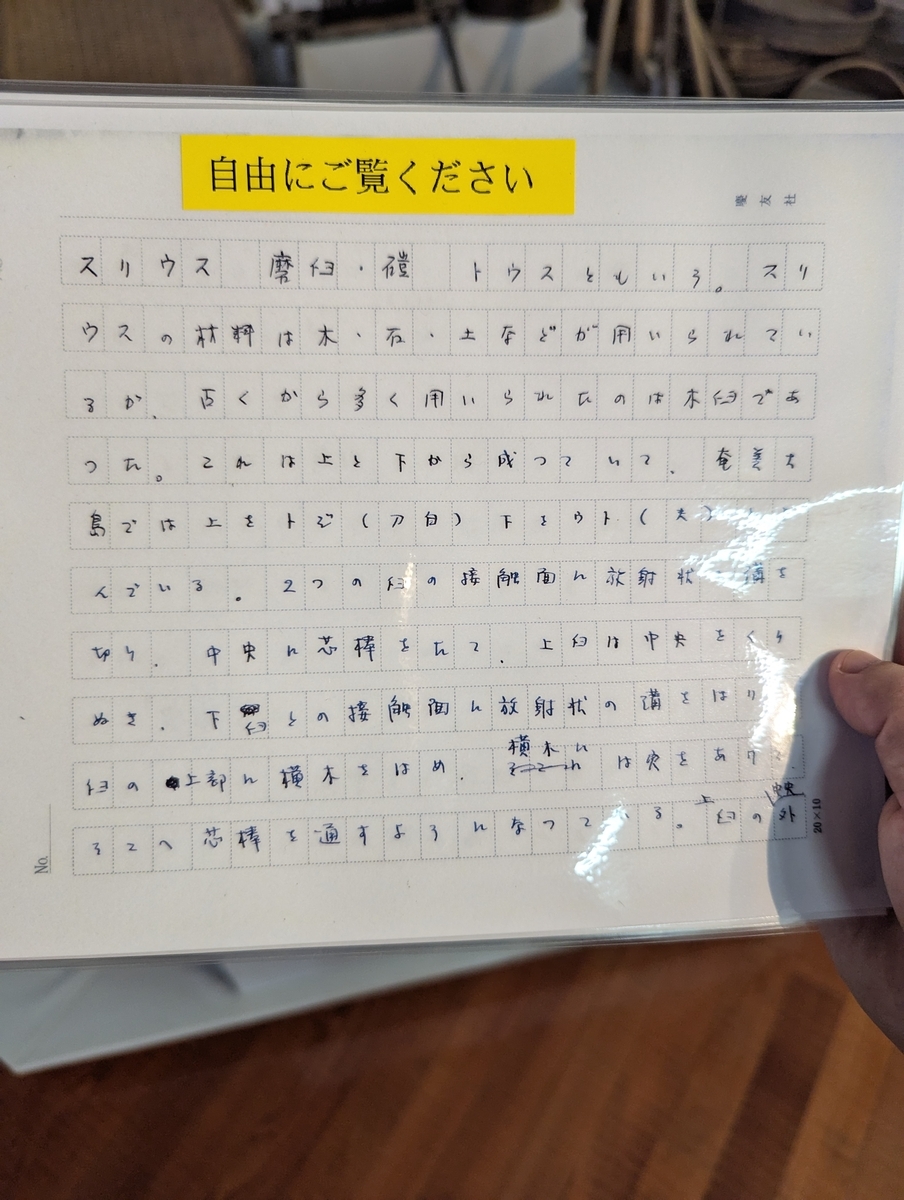 自由にご覧ください
慶友社
スリウス　磨臼・磑　トウスともいう。スリ
ウスの材料は木・石・土などが用いられてい
るが、古くから多く用いられたのは木臼であ
った。これは上と下から成っていて、奄美大
島では上をトジ(刀自)下をウト(夫)
んでいる。2つの臼の接触面に放射状の溝を
切り、中央に芯棒をたて、上臼は中央をくり
ぬき、下臼との接触面に放射状の溝をほり
臼の上部に横木をはめ、横木には穴をあけて、
そこへ芯棒を通すようになっている。上臼の中央外
No.
20×10